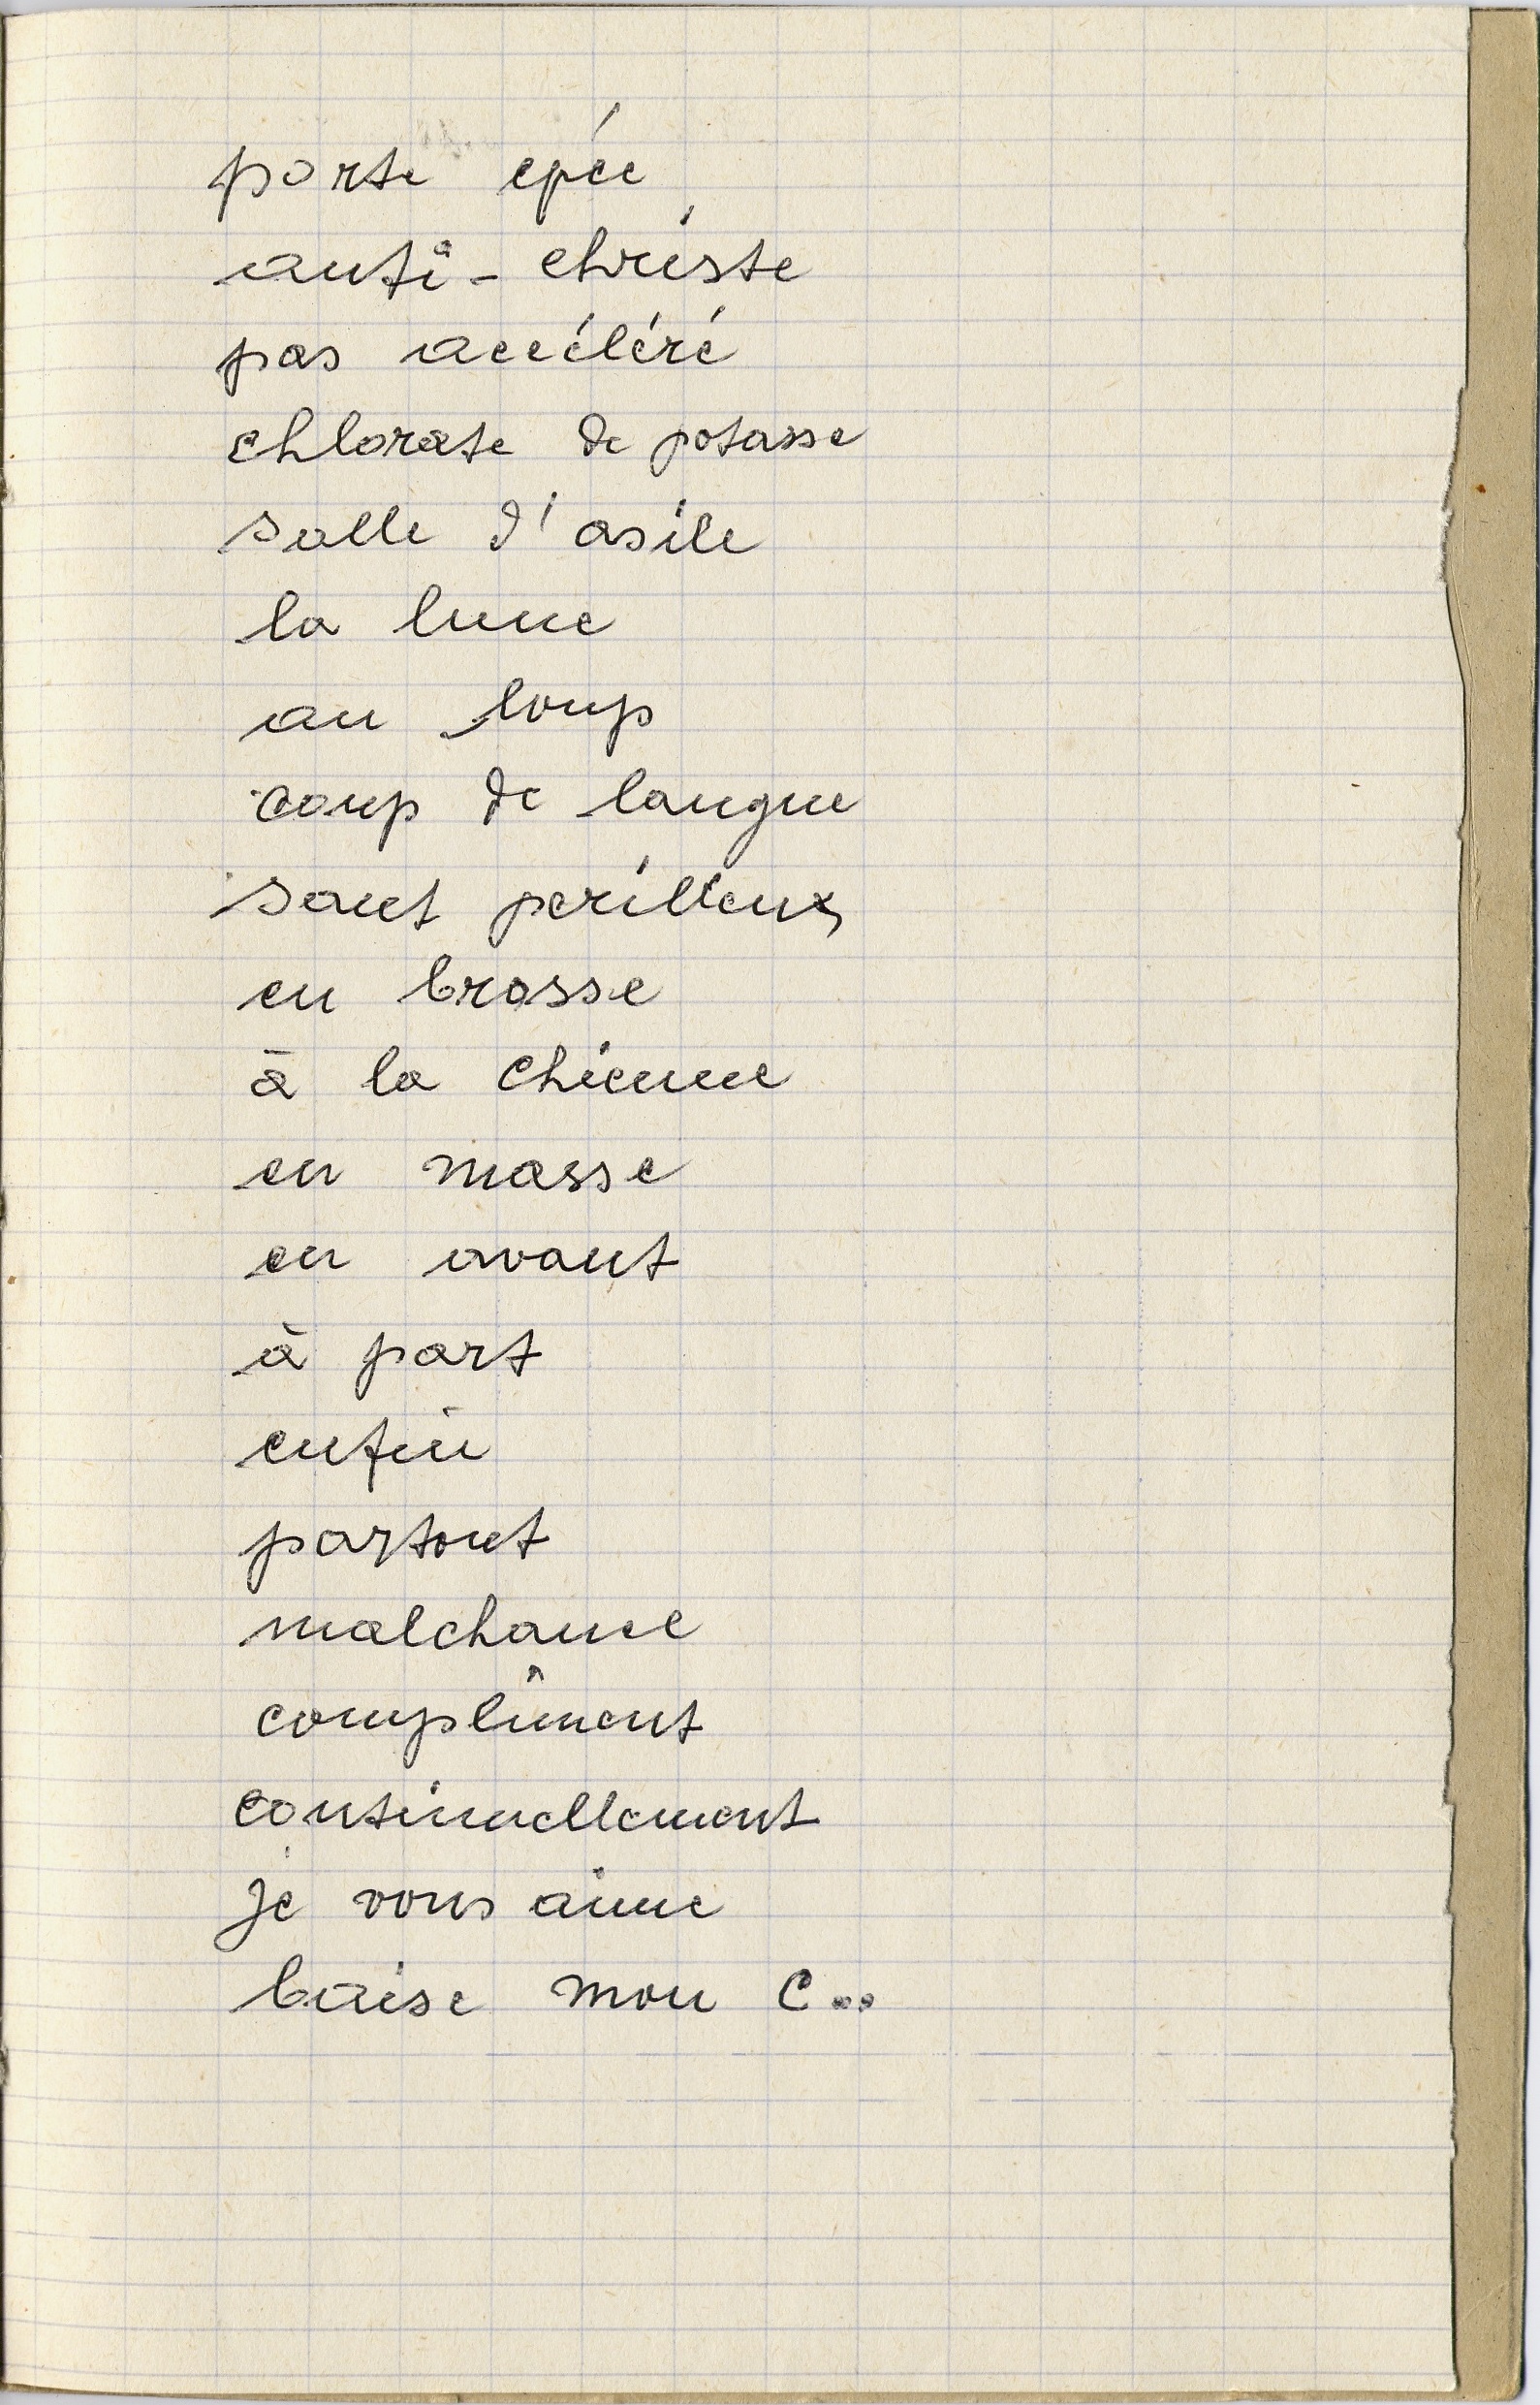 porte epée
anti - christe
pas accéléré
chlorate de potasse
salle d'asile
la lune
au loup
coup de langue
saut perilleux
en brosse
à la chienne
en masse
en avant
à part
enfin
partout
malchance
compliment
continuellement
je vous aime
baise mon c..